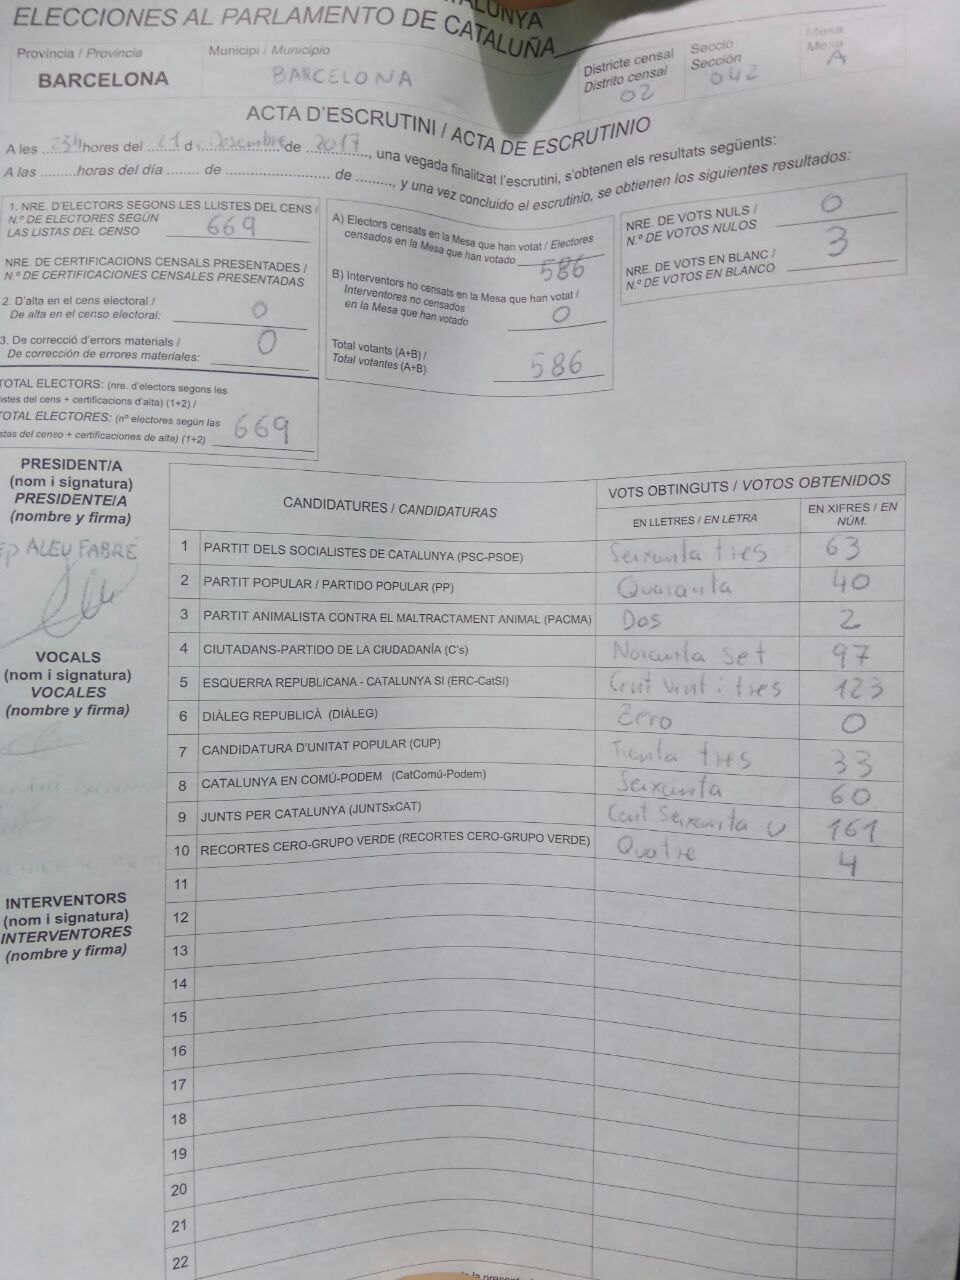 ATALUNYA
ELECCIONES AL PARLAMENTO DE CATALUÑA
Província / Provincia
BARCELONA
Municipi / Municipio
BARCELONA
Districte censal
Distrito censal
02
Secció
Sección
042
Mesa
Mesa
A
ACTA D'ESCRUTINI / ACTA DE ESCRUTINIO
A les 23h hores del 21 d Desembre de 2017, una vegada finalitzat l'escrutini, s'obtenen els resultats següents:
A las ......... horas del día ........ de .......................... de ........., y una vez concluido el escrutinio, se obtienen los siguientes resultados:
1. NRE. D'ELECTORS SEGONS LES LLISTES DEL CENS /
N.º DE ELECTORES SEGÚN
LAS LISTAS DEL CENSO 669
NRE. DE CERTIFICACIONS CENSALS PRESENTADES /
N.º DE CERTIFICACIONES CENSALES PRESENTADAS
2. D'alta en el cens electoral /
De alta en el censo electoral: 0
3. De correcció d'errors materials /
De corrección de errores materiales: 0
TOTAL ELECTORS: (nre. d'electors segons les
listes del cens + certificacions d'alta) (1+2) /
TOTAL ELECTORES: (nº electores según las
listas del censo + certificaciones de alta) (1+2) 669
A) Electors censats en la Mesa que han votat / Electores
censados en la Mesa que han votado 586
B) Interventors no censats en la Mesa que han votat /
Interventores no censados
en la Mesa que han votado 0
Total votants (A+B) /
Total votantes (A+B) 586
NRE. DE VOTS NULS /
N.º DE VOTOS NULOS 0
NRE. DE VOTS EN BLANC /
N.º DE VOTOS EN BLANCO 3
PRESIDENT/A
(nom i signatura)
PRESIDENTE/A
(nombre y firma)
ep ALEU FABRÉ
VOCALS
(nom i signatura)
VOCALES
(nombre y firma)
INTERVENTORS
(nom i signatura)
INTERVENTORES
(nombre y firma)
CANDIDATURES / CANDIDATURAS
VOTS OBTINGUTS / VOTOS OBTENIDOS
EN LLETRES / EN LETRA
EN XIFRES / EN
NÚM.
1 PARTIT DELS SOCIALISTES DE CATALUNYA (PSC-PSOE) Seixanta tres 63
2 PARTIT POPULAR / PARTIDO POPULAR (PP) Quaranta 40
3 PARTIT ANIMALISTA CONTRA EL MALTRACTAMENT ANIMAL (PACMA) Dos 2
4 CIUTADANS-PARTIDO DE LA CIUDADANÍA (C's) Noranta set 97
5 ESQUERRA REPUBLICANA - CATALUNYA SI (ERC-CatSí) Cent vint i tres 123
6 DIÀLEG REPUBLICÀ (DIÀLEG) Zero 0
7 CANDIDATURA D'UNITAT POPULAR (CUP) Trenta tres 33
8 CATALUNYA EN COMÚ-PODEM (CatComú-Podem) Seixanta 60
9 JUNTS PER CATALUNYA (JUNTSxCAT) Cent Seixanta u 161
10 RECORTES CERO-GRUPO VERDE (RECORTES CERO-GRUPO VERDE) Quatre 4
11
12
13
14
15
16
17
18
19
20
21
22